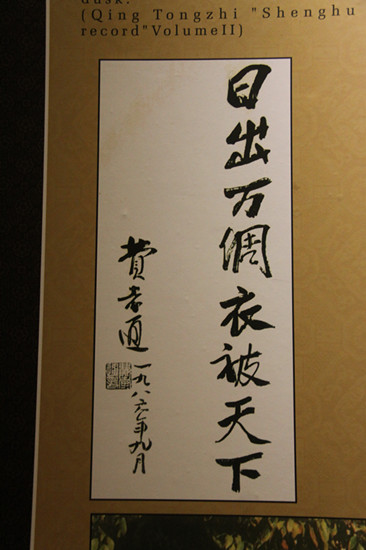 dusk.
(Qing Tongzhi "Shenghu
record"VolumeII)
日出万绸衣被天下
费孝通
一九八六年九月